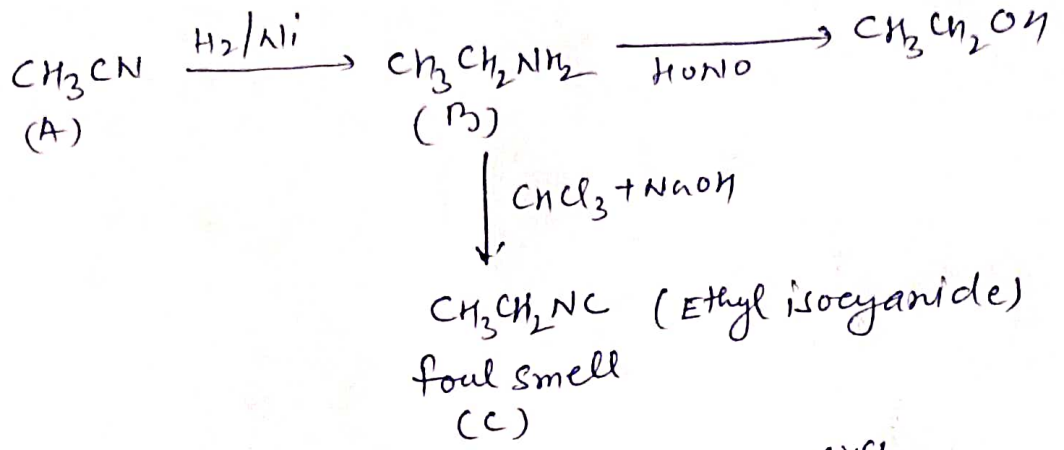 CH3CN H2/Ni CH3CH2NH2 HONO CH3CH2OH
(A) (B)
CHCl3 + NaOH
CH3CH2NC (Ethyl isocyanide)
foul smell
(C)